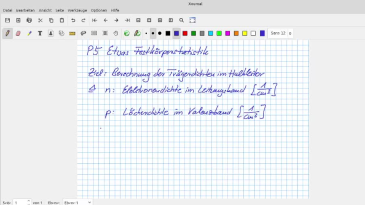 Xournal
Datei Bearbeiten Ansicht Seite Werkzeuge Optionen Hilfe
Sans 12
P5 Etwas Festkörperstatistik
Ziel: Berechnung der Trägerdichten im Halbleiter
n: Elektronendichte im Leitungsband [1/cm³]
p: Löcherdichte im Valenzband [1/cm³]
Seite 1 von 1 Ebene: Ebene 1